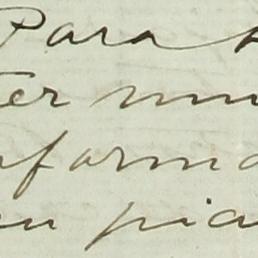 Para
ter mu
nforma
eu pia